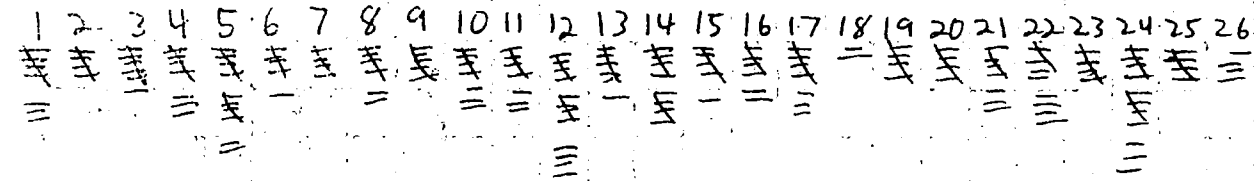 1 2 3 4 5 6 7 8 9 10 11 12 13 14 15 16 17 18 19 20 21 22 23 24 25 26